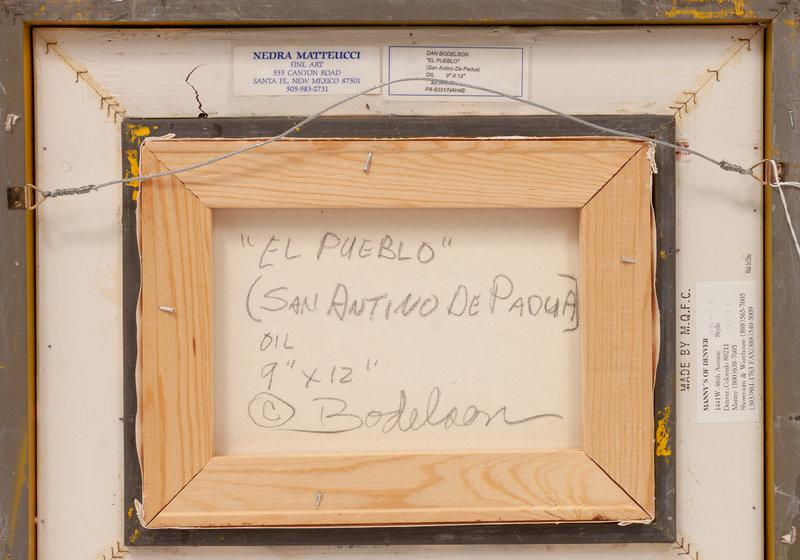 NEDRA MATTEUCCI
FINE ART
555 CANYON ROAD
SANTA FE, NEW MEXICO 87501
505-983-2731
DAN BODELSON
"EL PUEBLO"
(San Antino De Padua)
OIL 9" X 12"
PA-5331/NAH4B
"EL PUEBLO"
(SAN ANTINO DE PADUA)
OIL
9" X 12"
© Bodelson
MADE BY M.Q.F.C.
MANNY'S OF DENVER
1441W 46th Avenue Style
Denver, Colorado 80211
Manny (800)638-7605
Showroom & Warehouse (888)565-7605
(303)861-1763 FAX(888)540-5009
Made In China